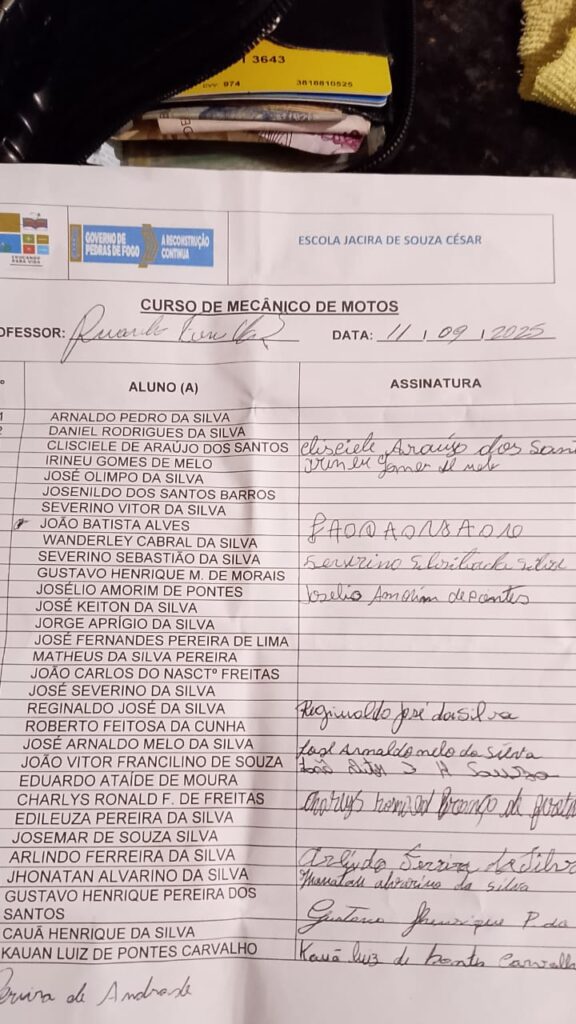 3643
CVV 974 3818810525
CRUZANDO PARA VIDA
GOVERNO DE
PEDRAS DE FOGO
A RECONSTRUÇÃO
CONTINUA
ESCOLA JACIRA DE SOUZA CÉSAR
CURSO DE MECÂNICO DE MOTOS
OFESSOR: DATA: 11 / 09 / 2025
º ALUNO (A) ASSINATURA
1 ARNALDO PEDRO DA SILVA
2 DANIEL RODRIGUES DA SILVA
CLISCIELE DE ARAÚJO DOS SANTOS Clisciele Araújo dos Sant
IRINEU GOMES DE MELO irineu gomes de melo
JOSÉ OLIMPO DA SILVA
JOSENILDO DOS SANTOS BARROS
SEVERINO VITOR DA SILVA
JOÃO BATISTA ALVES
WANDERLEY CABRAL DA SILVA
SEVERINO SEBASTIÃO DA SILVA Severino
GUSTAVO HENRIQUE M. DE MORAIS
JOSÉLIO AMORIM DE PONTES Joselio Amorim de pontes
JOSÉ KEITON DA SILVA
JORGE APRÍGIO DA SILVA
JOSÉ FERNANDES PEREIRA DE LIMA
MATHEUS DA SILVA PEREIRA
JOÃO CARLOS DO NASCTº FREITAS
JOSÉ SEVERINO DA SILVA
REGINALDO JOSÉ DA SILVA Reginaldo José da Silva
ROBERTO FEITOSA DA CUNHA
JOSÉ ARNALDO MELO DA SILVA José Arnaldo melo da Silva
JOÃO VITOR FRANCILINO DE SOUZA João Vitor Souza
EDUARDO ATAÍDE DE MOURA
CHARLYS RONALD F. DE FREITAS Charlys de
EDILEUZA PEREIRA DA SILVA
JOSEMAR DE SOUZA SILVA
ARLINDO FERREIRA DA SILVA Arlindo Ferreira da Silva
JHONATAN ALVARINO DA SILVA Jhonatan alvarino da silva
GUSTAVO HENRIQUE PEREIRA DOS
SANTOS Gustavo Henrique P. do
CAUÃ HENRIQUE DA SILVA
KAUAN LUIZ DE PONTES CARVALHO Kauã luiz de Pontes Carvalh
de Andrade